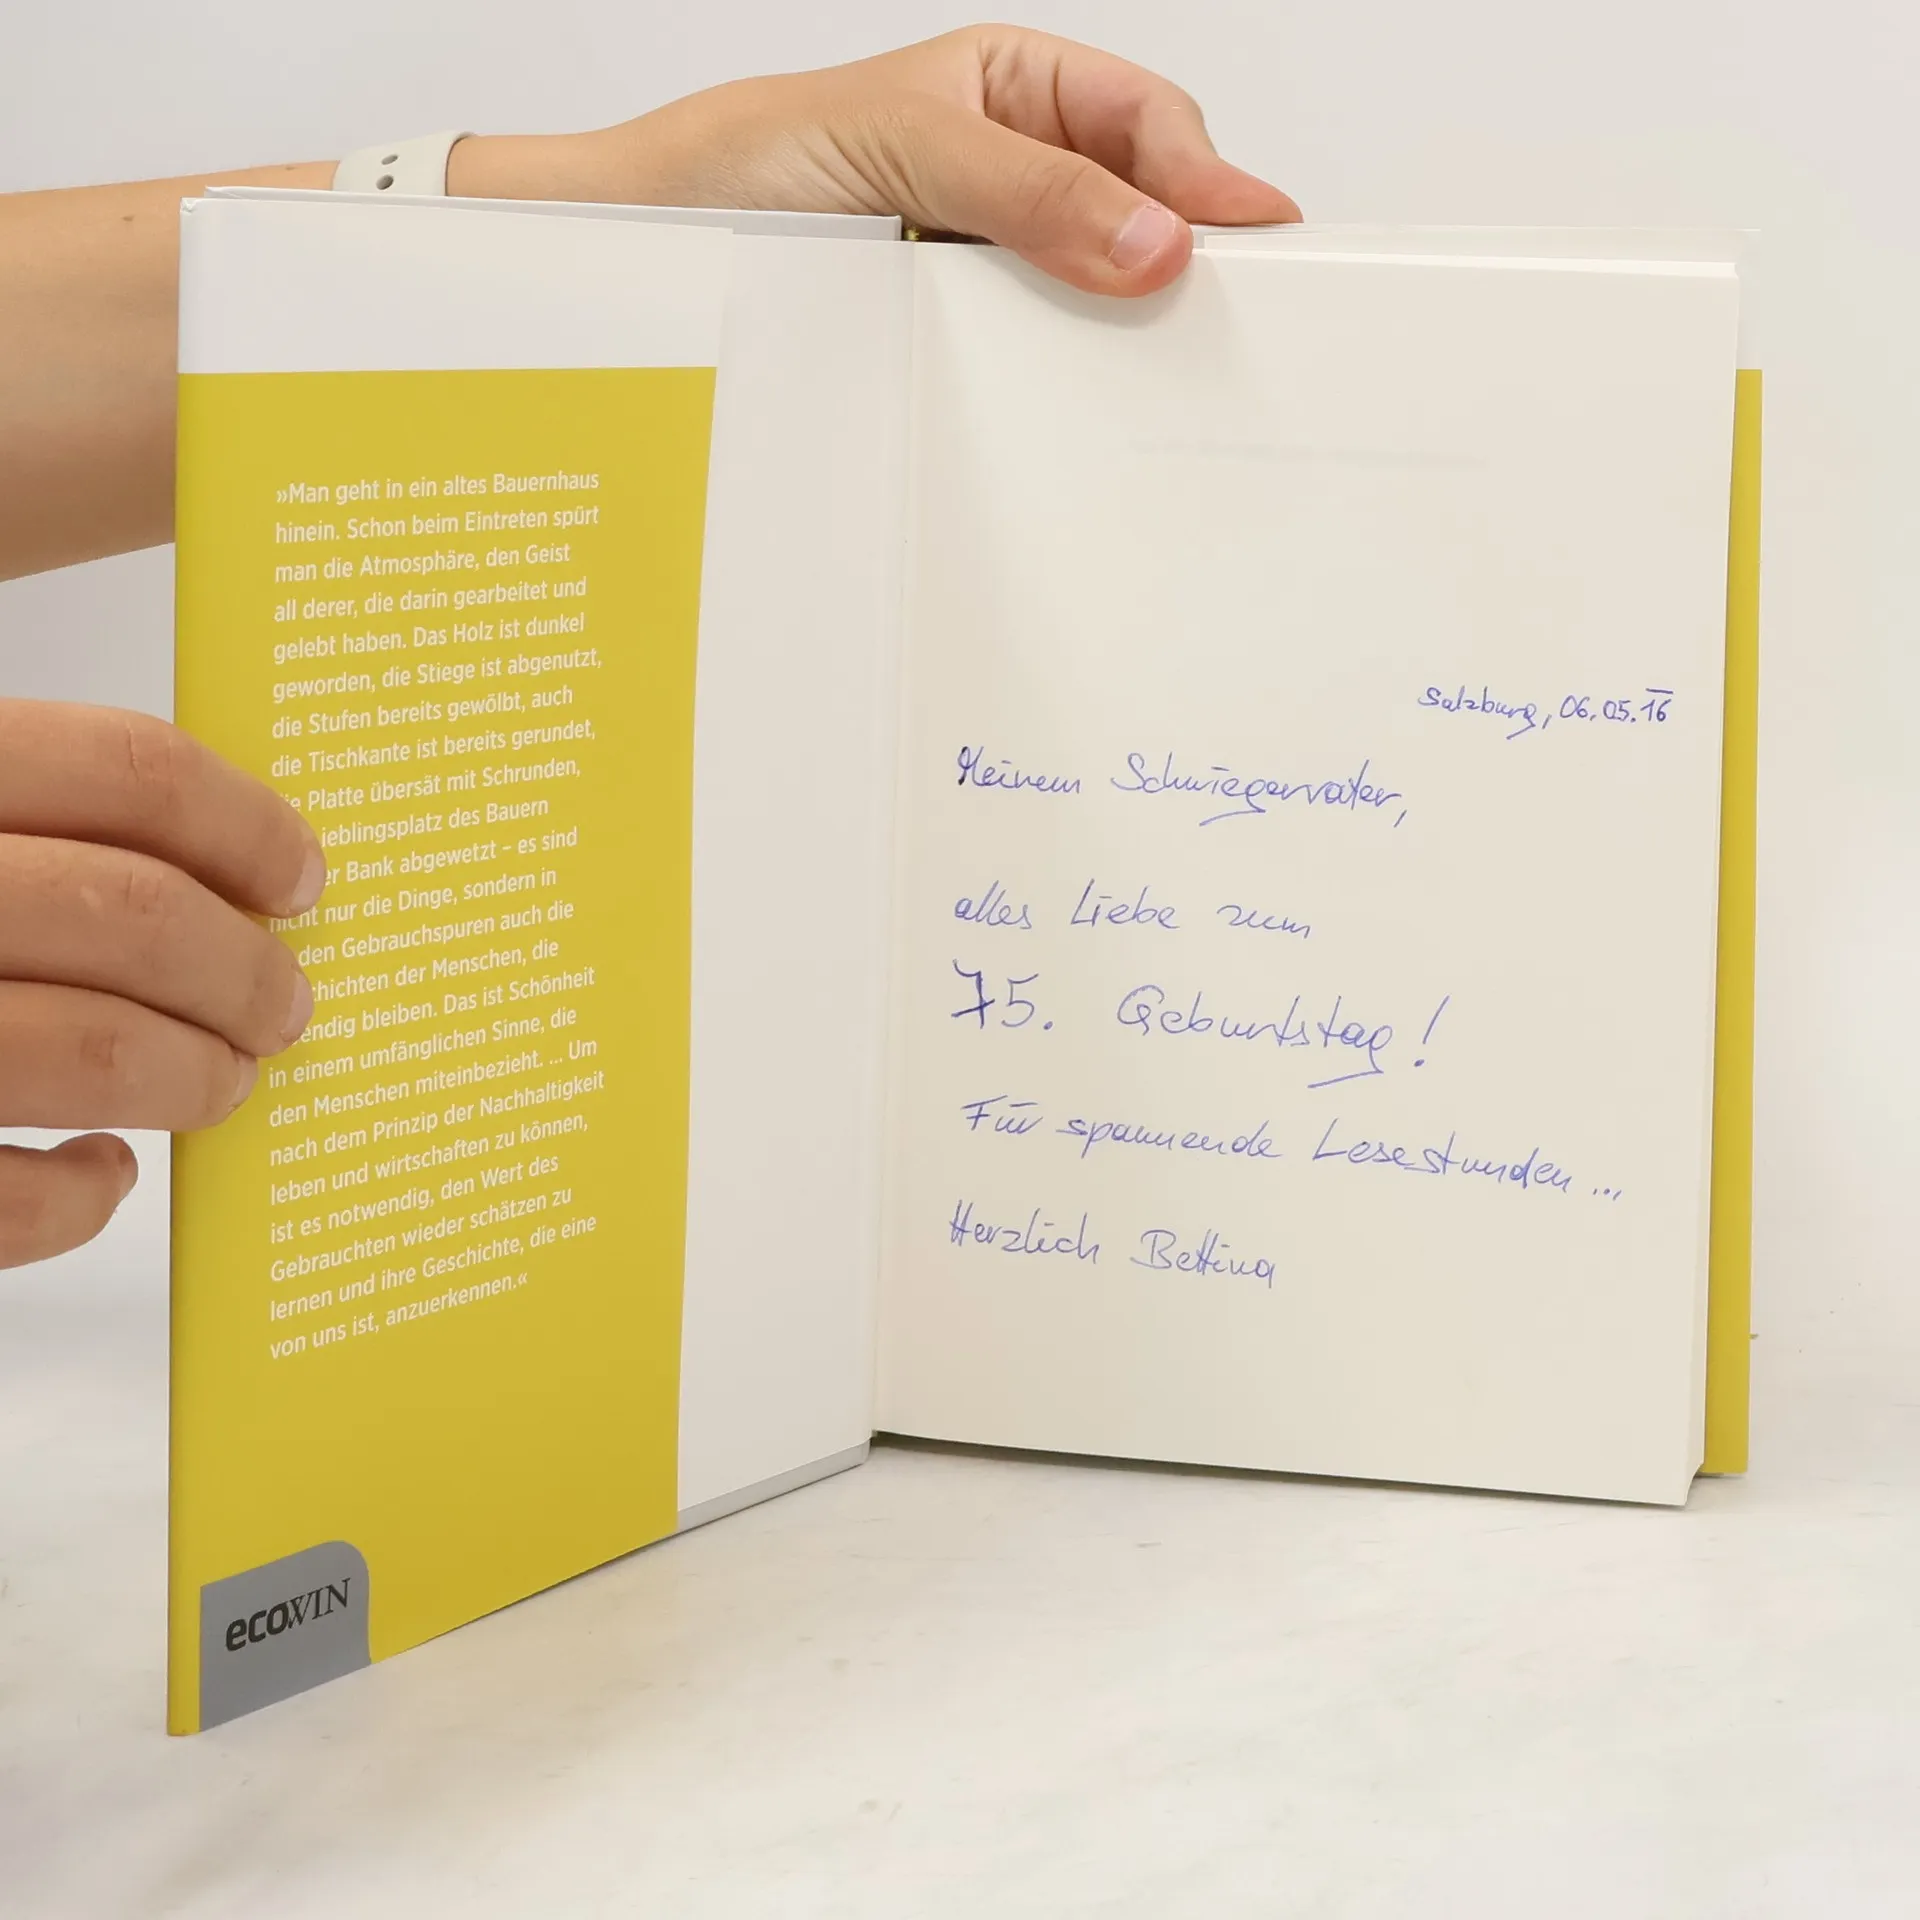 »Man geht in ein altes Bauernhaus
hinein. Schon beim Eintreten spürt
man die Atmosphäre, den Geist
all derer, die darin gearbeitet und
gelebt haben. Das Holz ist dunkel
geworden, die Stiege ist abgenutzt,
die Stufen bereits gewölbt, auch
die Tischkante ist bereits gerundet,
Platte übersät mit Schrunden,
ieblingsplatz des Bauern
er Bank abgewetzt – es sind
nicht nur die Dinge, sondern in
den Gebrauchspuren auch die
chichten der Menschen, die
endig bleiben. Das ist Schönheit
in einem umfänglichen Sinne, die
den Menschen miteinbezieht. ... Um
nach dem Prinzip der Nachhaltigkeit
leben und wirtschaften zu können,
ist es notwendig, den Wert des
Gebrauchten wieder schätzen zu
lernen und ihre Geschichte, die eine
von uns ist, anzuerkennen.«
ecoWIN
Salzburg, 06.05.16
Meinem Schwiegervater,
alles Liebe zum
75. Geburtstag!
Für spannende Lesestunden...
Herzlich Bettina